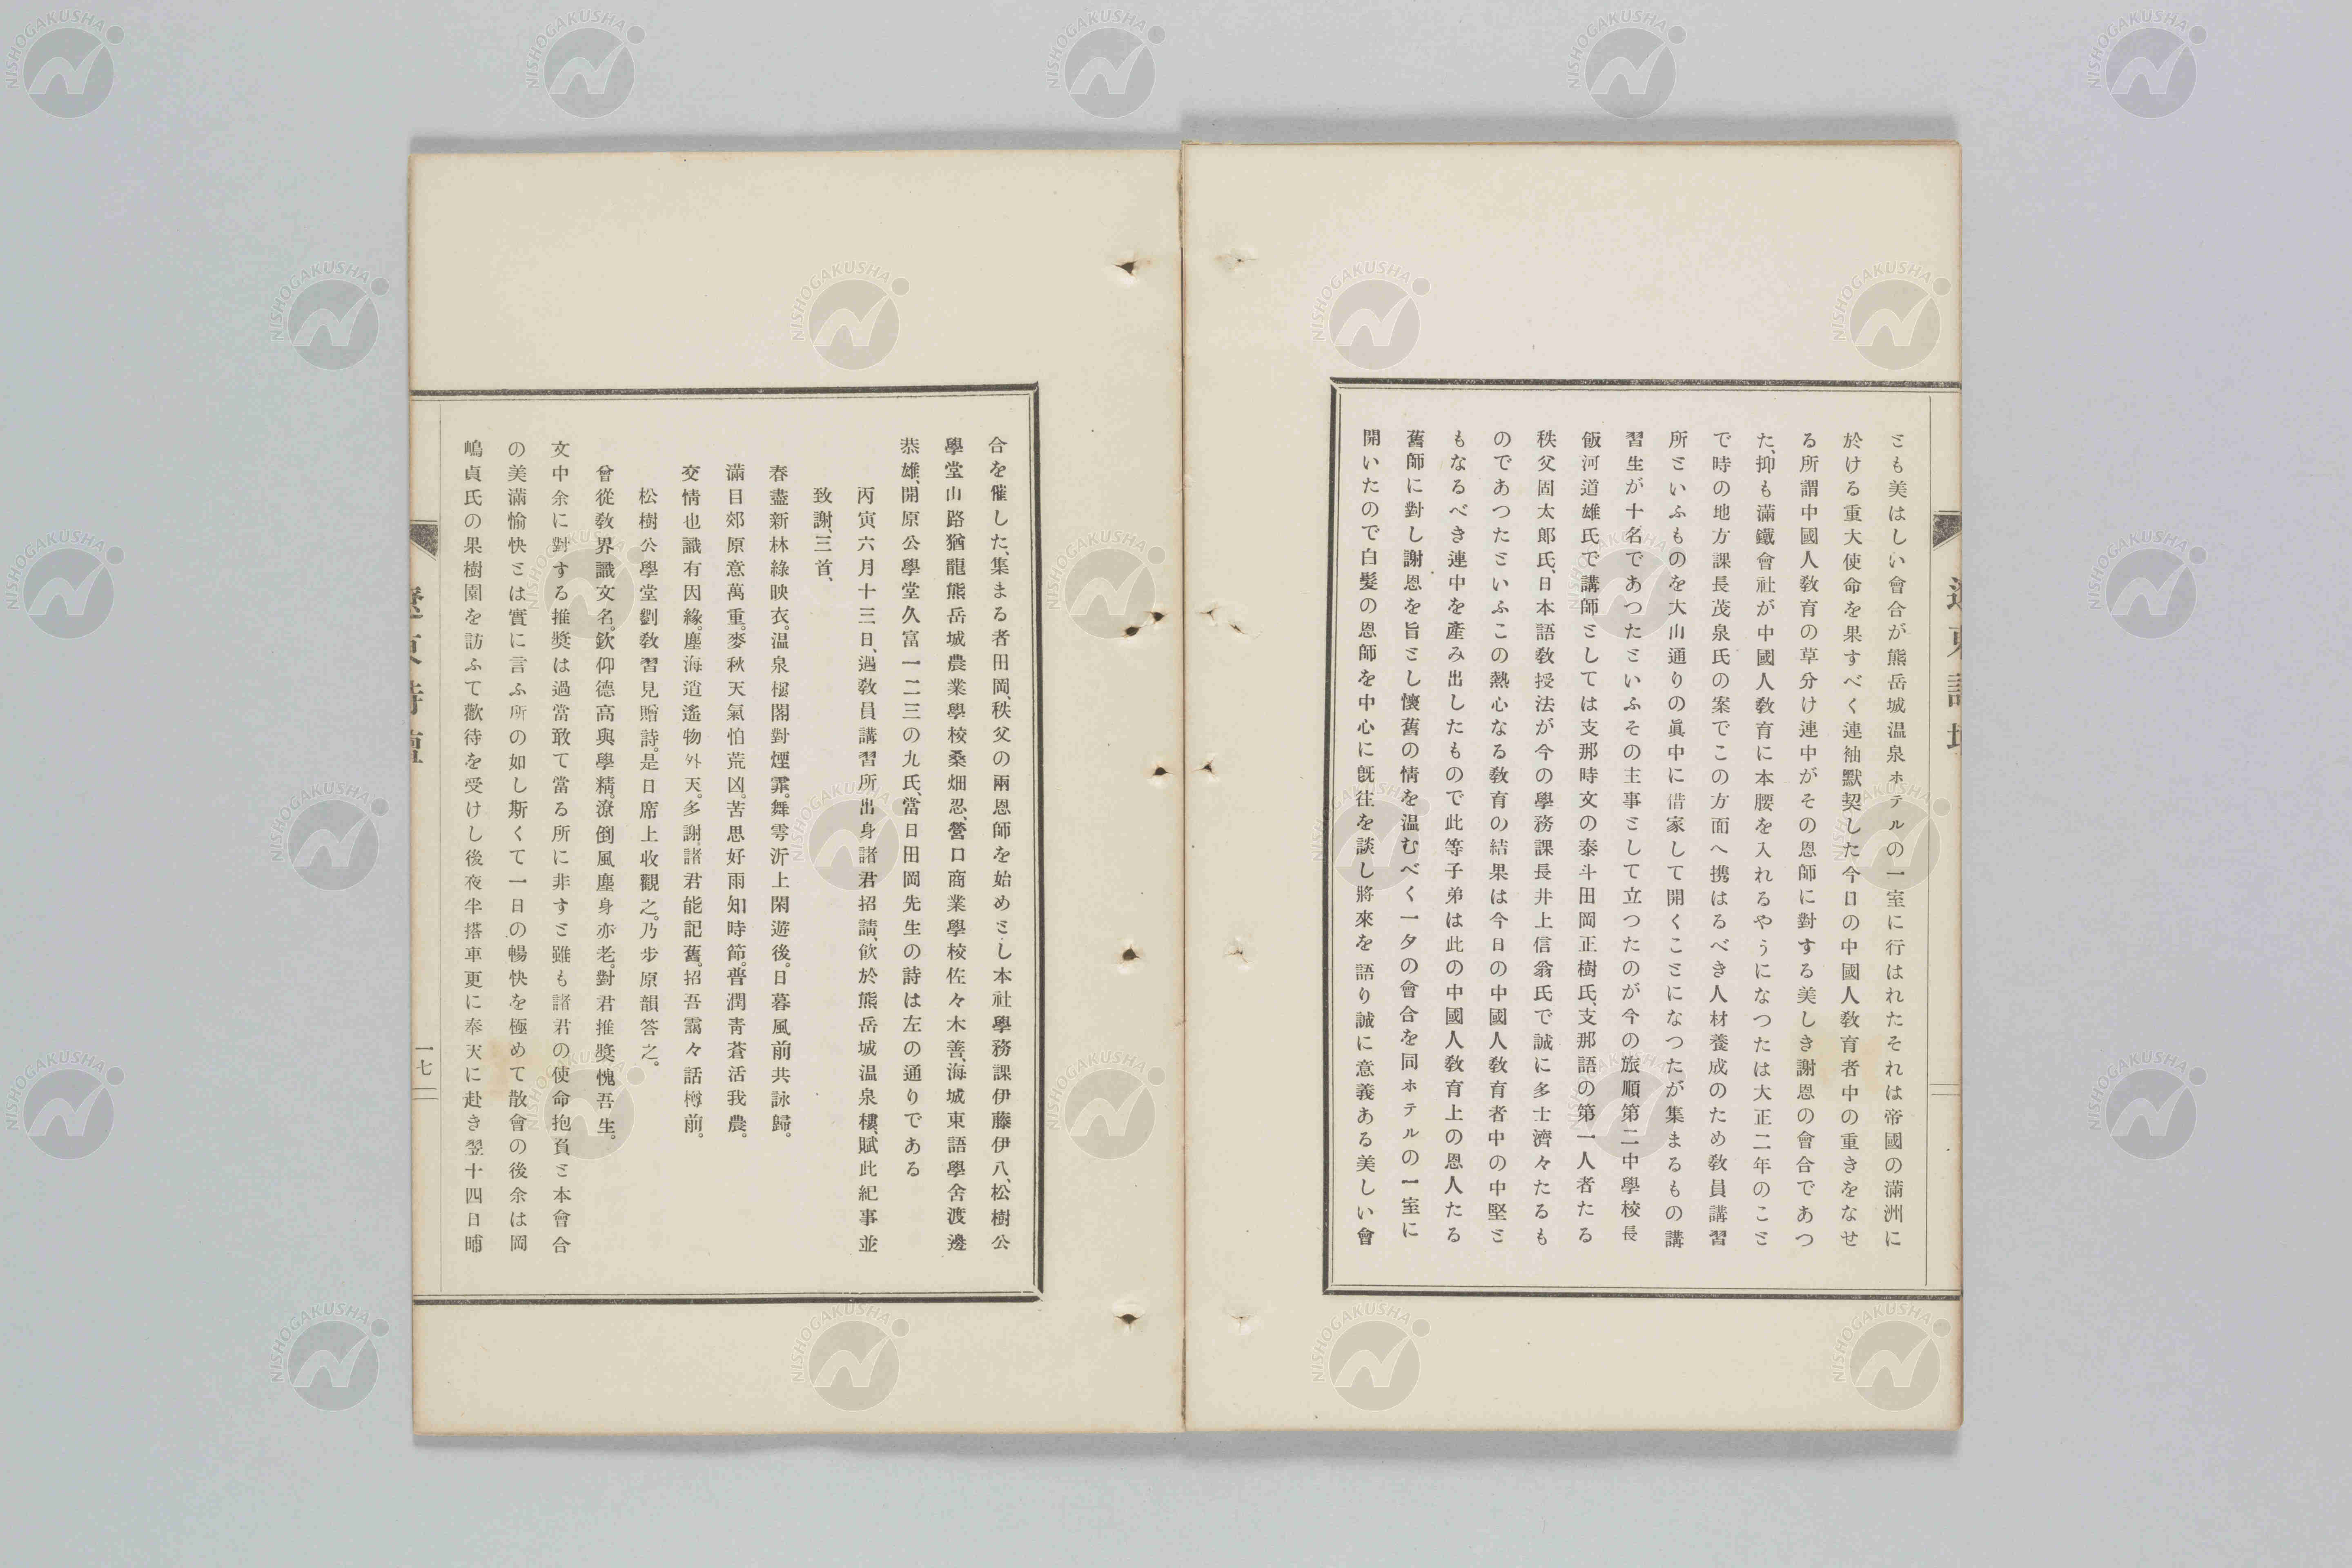 とも美はしい會合が熊岳城温泉ホテルの一室に行はれたそれは帝國の滿洲に
於ける重大使命を果すべく連袖默契した今日の中國人教育者中の重きをなせ
る所謂中國人教育の草分け連中がその恩師に對する美しき謝恩の會合であつ
た、抑も滿鐵會社が中國人教育に本腰を入れるやうになつたは大正二年のこと
で時の地方課長茂泉氏の案でこの方面へ携はるべき人材養成のため教員講習
所といふものを大山通りの眞中に借家して開くことになつたが集まるもの講
習生が十名であつたといふその主事として立つたのが今の旅順第二中學校長
飯河道雄氏で講師としては支那時文の泰斗田岡正樹氏、支那語の第一人者たる
秩父固太郎氏、日本語教授法が今の學務課長井上信翁氏で誠に多士濟々たるも
のであつたといふこの熱心なる教育の結果は今日の中國人教育者中の中堅と
もなるべき連中を產み出したもので此等子弟は此の中國人教育上の恩人たる
舊師に對し謝恩を旨とし懷舊の情を温むべく一夕の會合を同ホテルの一室に
開いたので白髮の恩師を中心に既往を談し將來を語り誠に意義ある美しい會
合を催した、集まる者田岡、秩父の兩恩師を始めとし本社學務課伊藤伊八、松樹公
學堂山路猶龍熊岳城農業學校桑畑忍、營口商業學校佐々木善、海城東語學舍渡邊
恭雄、開原公學堂久富一二三の九氏、當日田岡先生の詩は左の通りである
丙寅六月十三日、遇教員講習所出身諸君招請、飮於熊岳城温泉樓、賦此紀事並
致謝、三首、
春盡新林綠映衣。温泉樓閣對煙霏。舞雩沂上閑遊後。日暮風前共詠歸。
滿目郊原意萬重。麥秋天氣怕荒凶。苦思好雨知時節。普潤靑蒼活我農。
交情也識有因緣。塵海逍遙物外天。多謝諸君能記舊。招吾靄々話樽前。
松樹公學堂劉教習見贈詩。是日席上收觀之。乃步原韻答之。
曾從教界識文名。欽仰德高與學精。潦倒風塵身亦老。對君推奬愧吾生。
文中余に對する推奬は過當敢て當る所に非すと雖も諸君の使命抱負と本會合
の美滿愉快とは實に言ふ所の如し斯くて一日の暢快を極めて散會の後余は岡
嶋貞氏の果樹園を訪ふて歡待を受けし後夜半搭車更に奉天に赴き翌十四日晡
一七
NISHOGAKUSHA